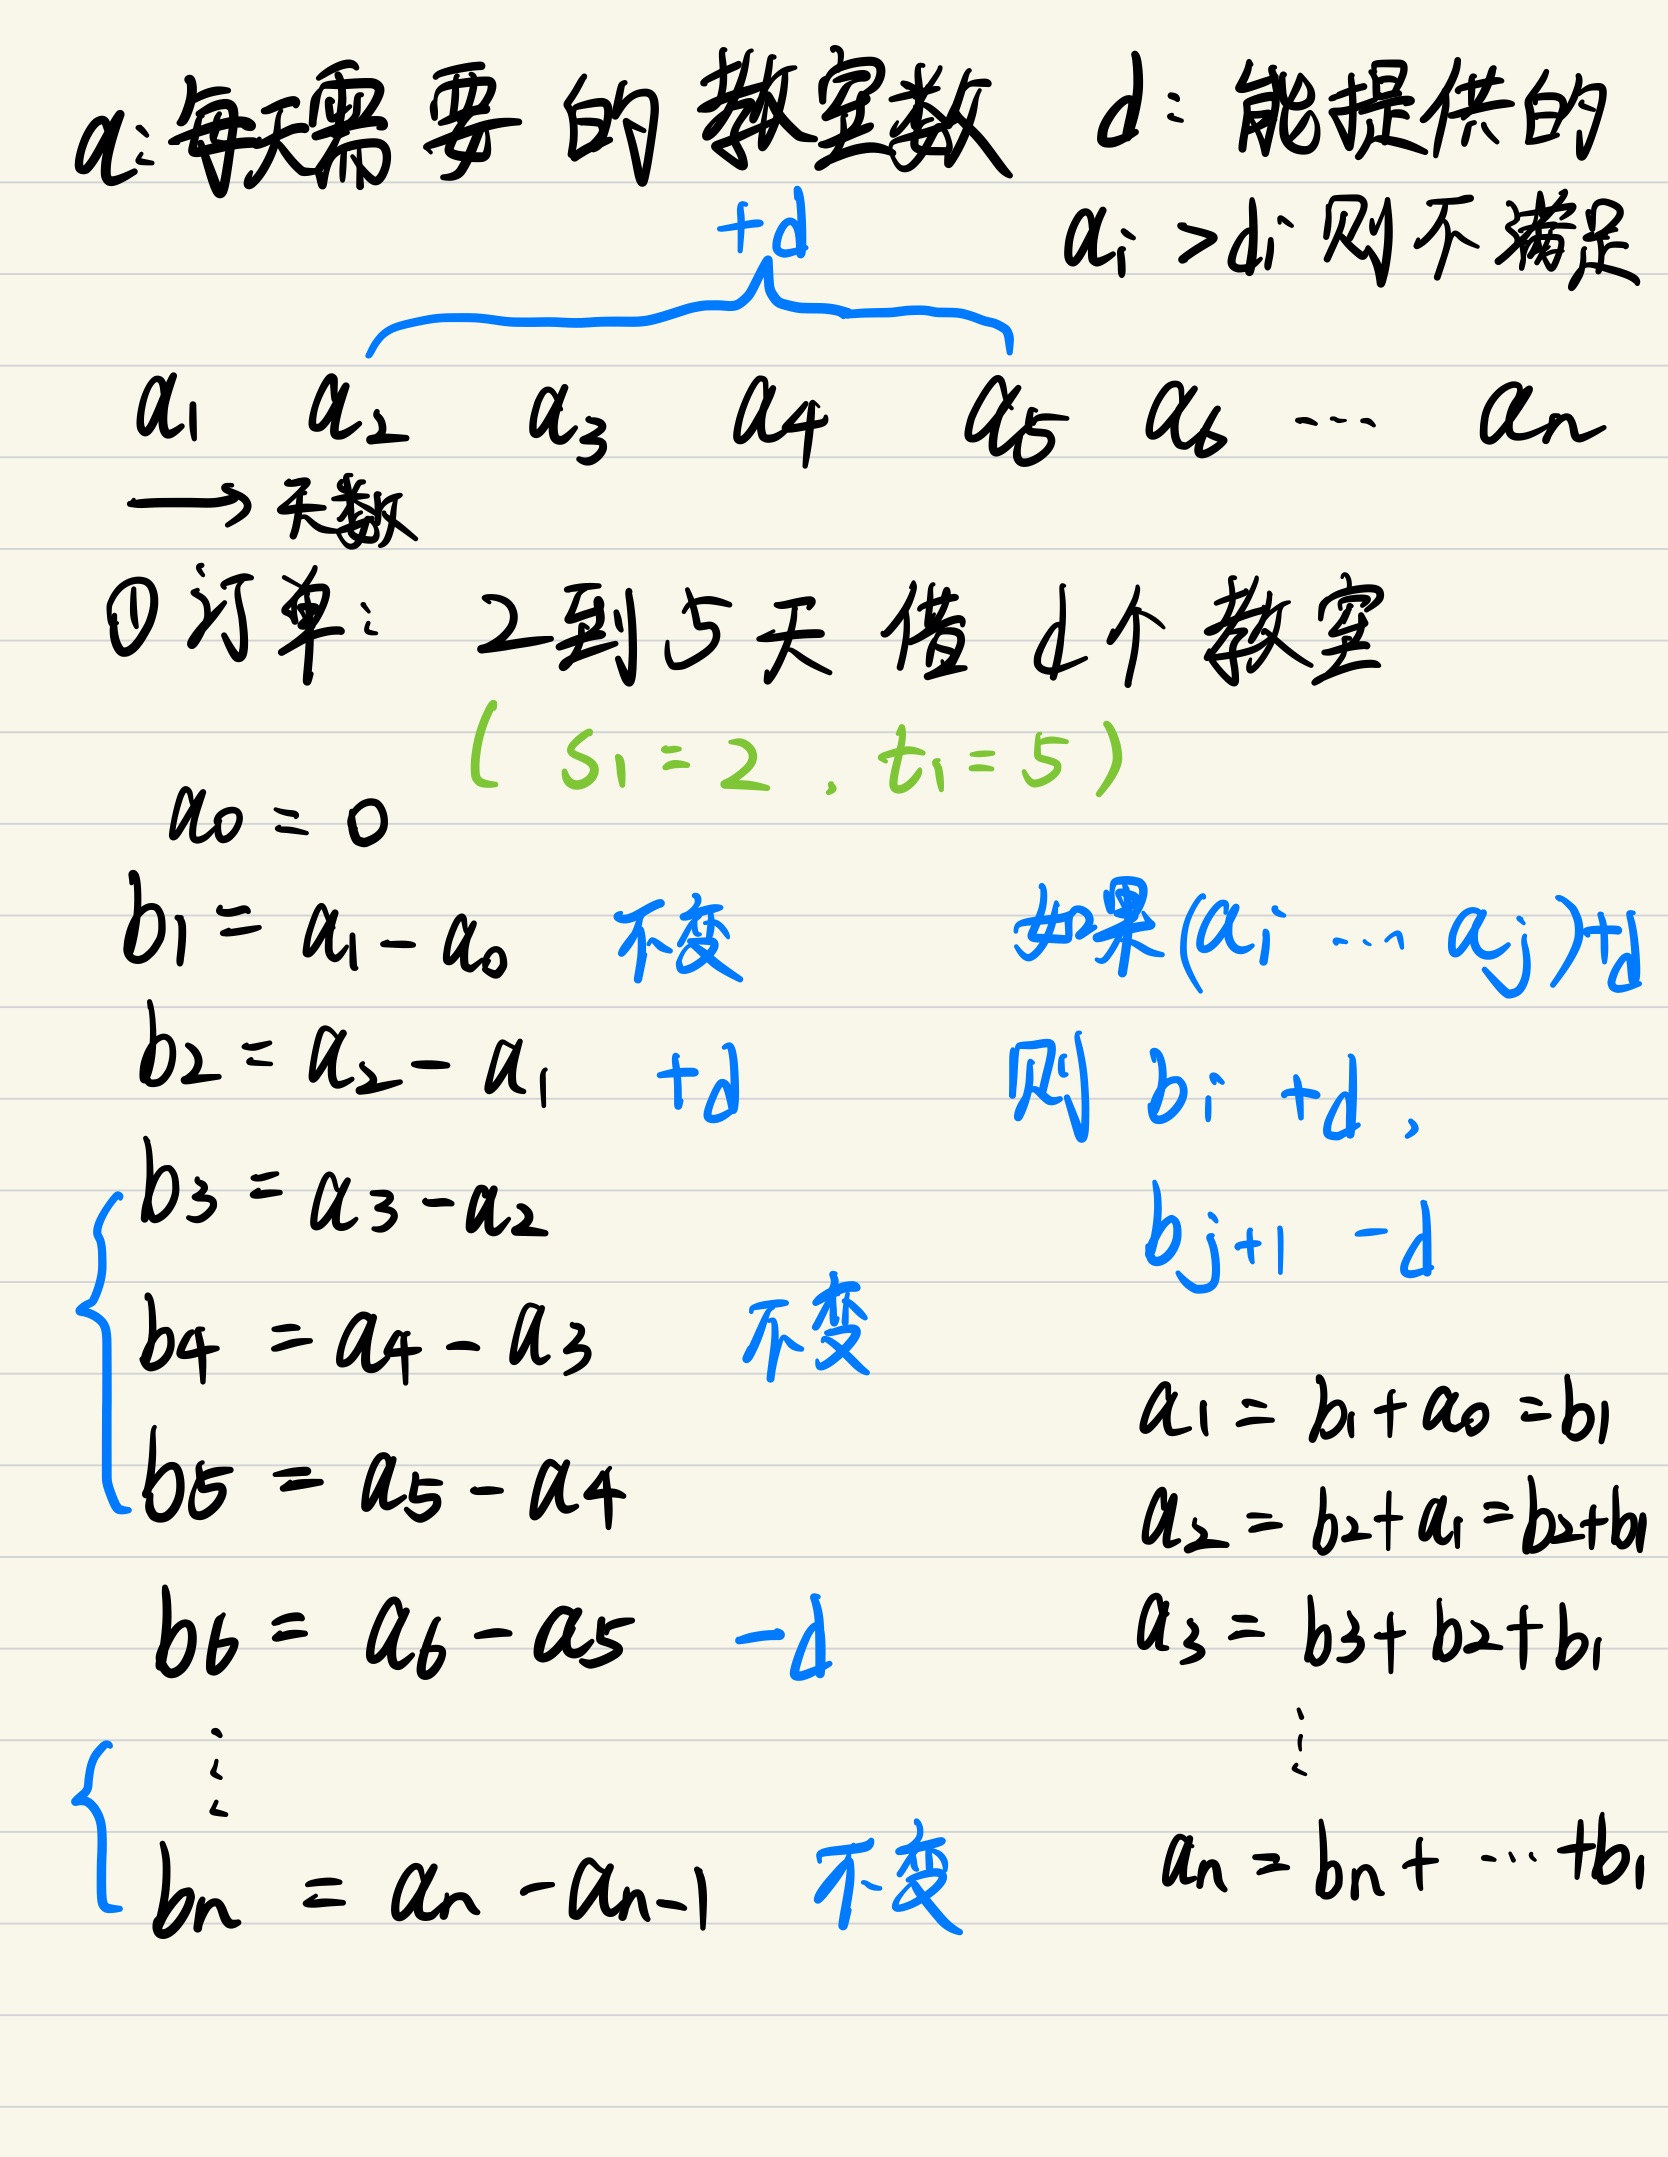 a: 每天需要的教室数 d: 能提供的
aᵢ > dᵢ 则不满足
+d
a₁ a₂ a₃ a₄ a₅ a₆ ... aₙ
→ 天数
① 订单: 2到5天借d个教室
( s₁ = 2 , t₁ = 5 )
a₀ = 0
b₁ = a₁ - a₀ 不变
b₂ = a₂ - a₁ +d
b₃ = a₃ - a₂
b₄ = a₄ - a₃ 不变
b₅ = a₅ - a₄
b₆ = a₆ - a₅ -d
⋮
bₙ = aₙ - aₙ₋₁ 不变
如果(aᵢ ... aⱼ)+d
则 bᵢ +d ,
bⱼ₊₁ -d
a₁ = b₁ + a₀ = b₁
a₂ = b₂ + a₁ = b₂ + b₁
a₃ = b₃ + b₂ + b₁
⋮
aₙ = bₙ + ... + b₁